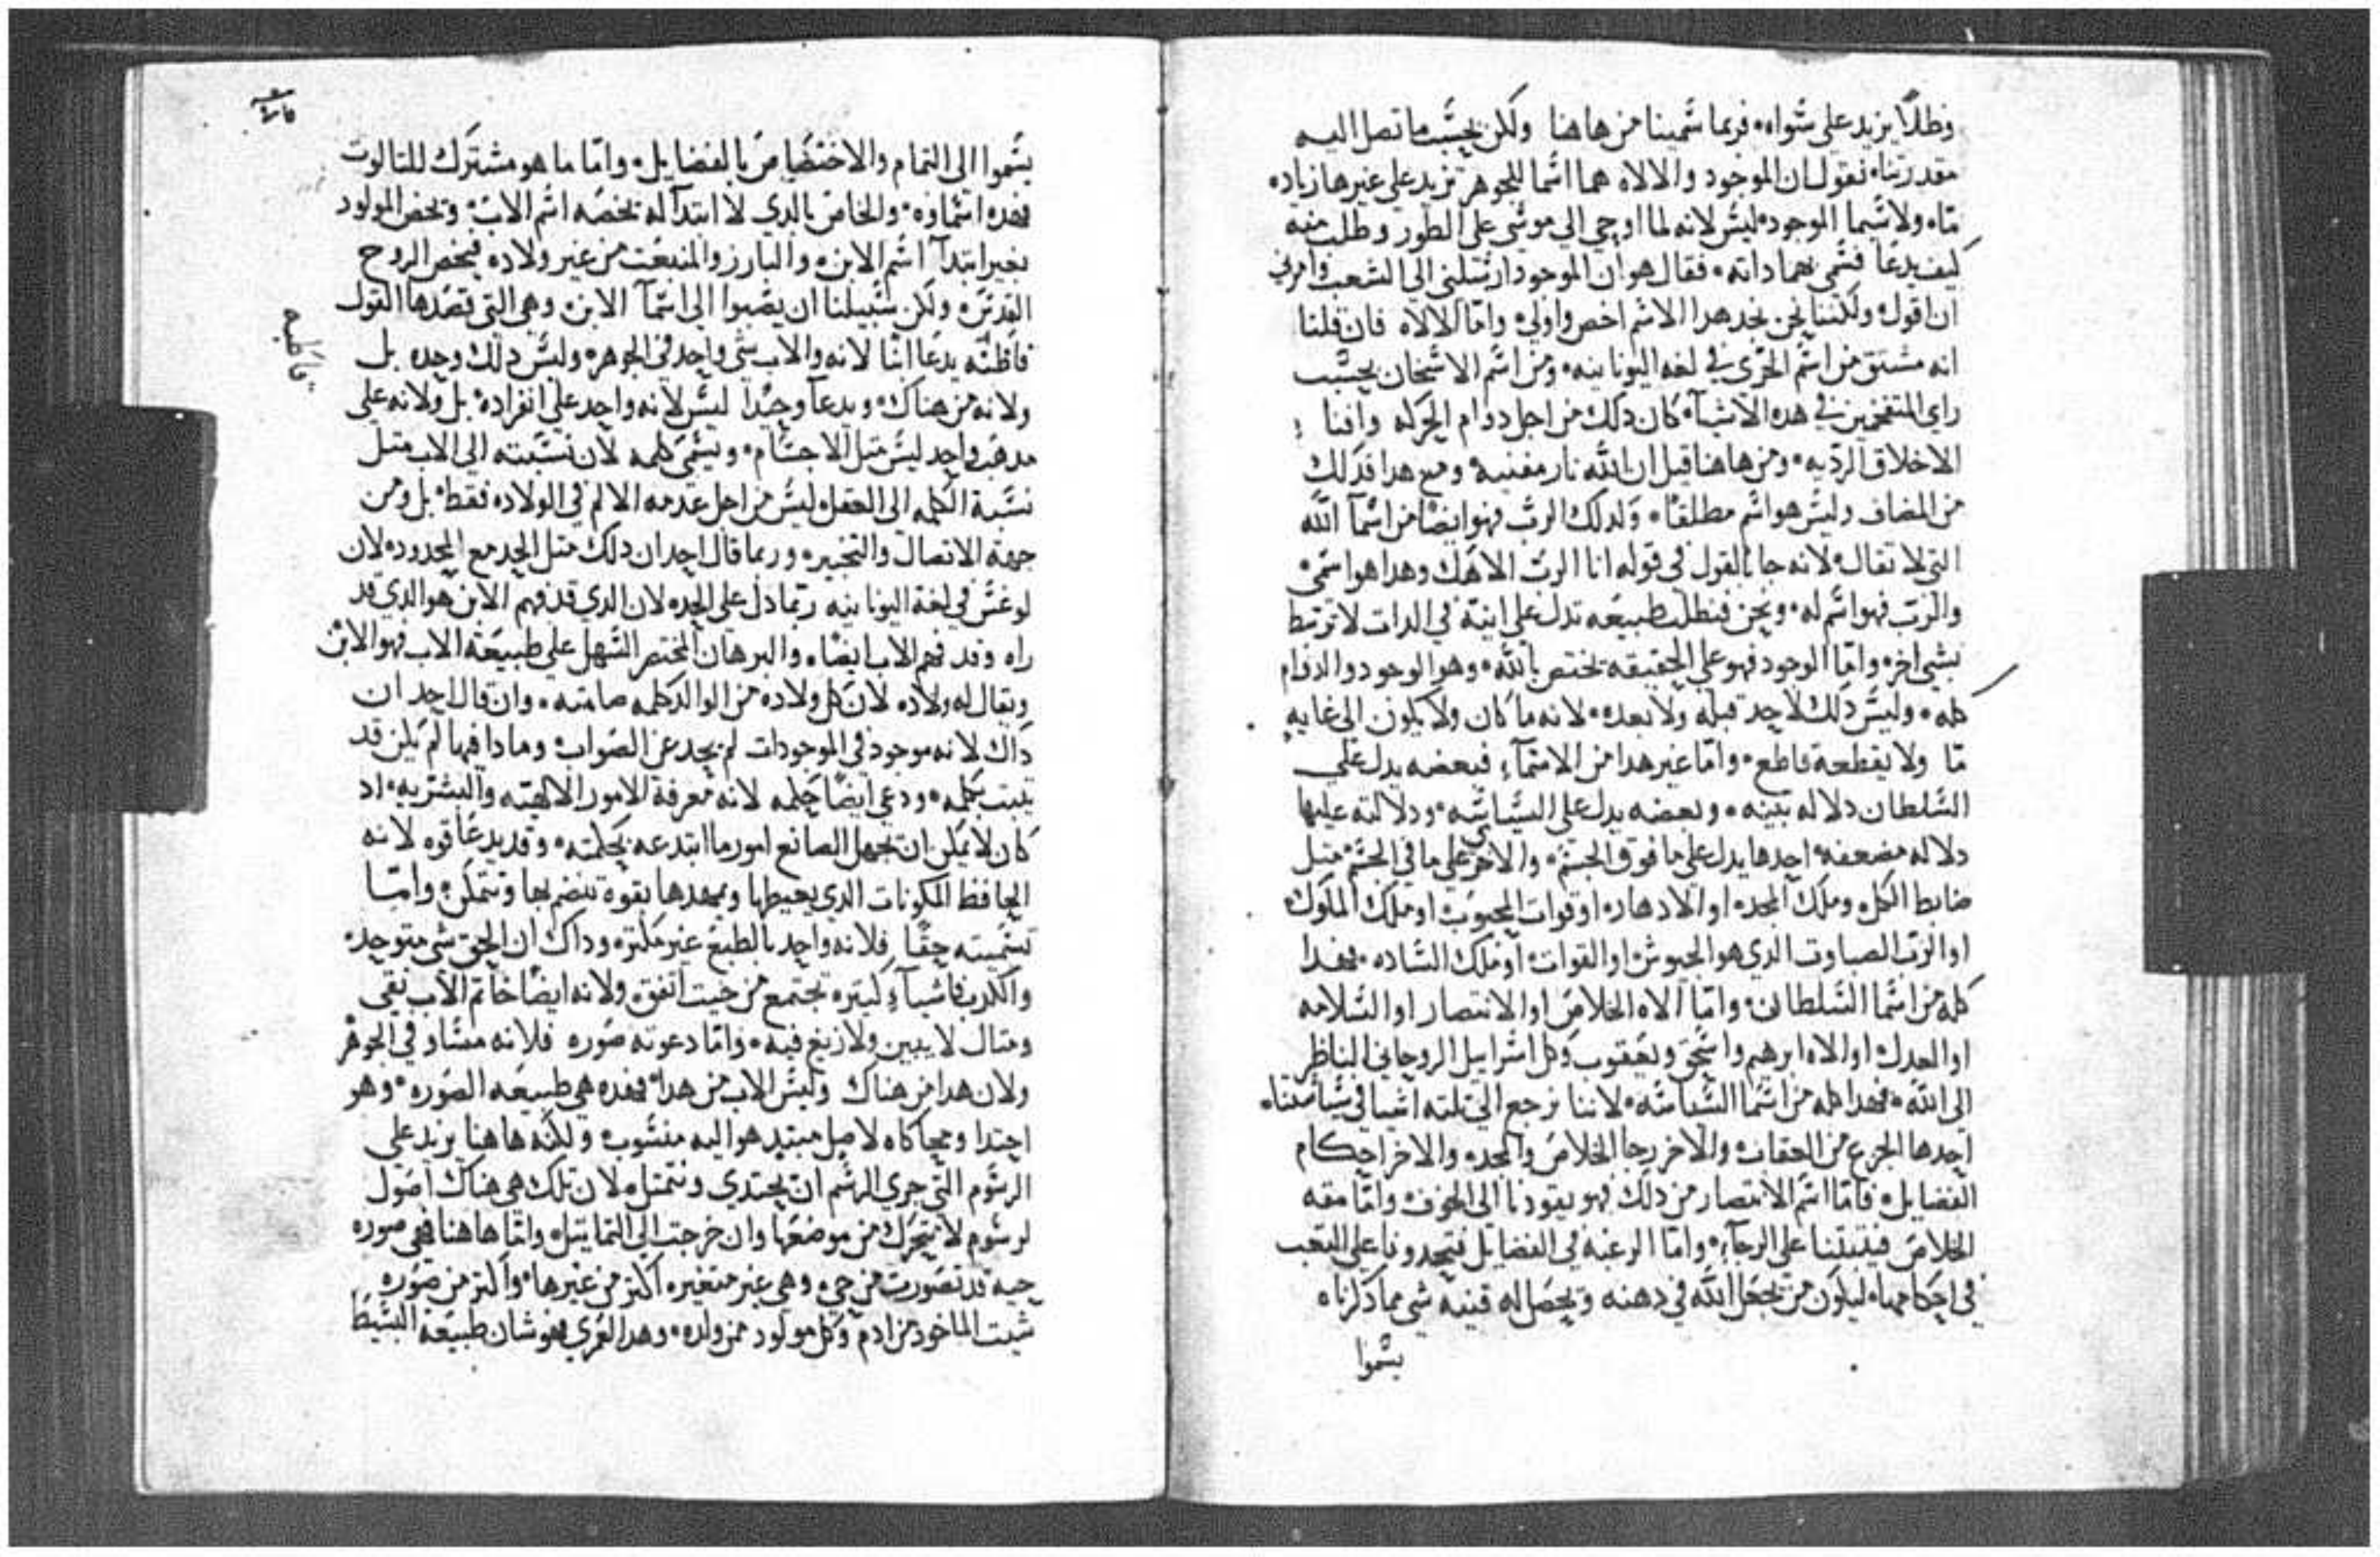 وظلًا يزيد على سواه فربما سمينا من هاهنا ولكن بحسب ما تصل اليه
مقدرتنا نقول ان الموجود والالاه هما اسما للجوهر تزيد على غيرها زياده
ما ولا سيما الموجود ليس لانه لما اوحي الي موسى على الطور وطلب منه
كيف يدعا فسمى بهما داته فقال هو ان الموجود ارسلني الى الشعب وامرني
ان اقول ولكننا نحن نجد هدا الاسم اخص واولى واما الالاه فان قلنا
انه مشتق من اسم الجري في لغه اليونانيه ومن اسم الاسخان بحسب
راي المتفخمين في هده الاشيآ كان دلك من اجل دوام الحركه وافنا
الاخلاق الرديه ومن هاهنا قيل ان الله نار مفنيه ومع هدا فدلك
من المضاف وليس هو اسم مطلقًا ولدلك الرب فهو ايضًا من اسمآ الله
التي لا تقال لانه جا بالقول في قوله انا الرب الاهك وهدا هو اسمي
والرب فهو اسم له ونحن فنطلب طبيعه تدل على انيه في الدات لا ترتبط
بشي اخر واما الوجود فهو على الحقيقه يختص بالله وهو الوجود والدوام
كله وليس دلك لاحد قبله ولا بعده لانه ما كان ولا يكون الى غايه
ما ولا يقطعه قاطع واما غير هدا من الاسمآء فبعضه يدل على
السلطان دلاله بينه وبعضه يدل على السياسه ودلالته عليها
دلاله مضعفه احدها يدل على ما فوق الجسم والاخرى على ما في الجسم متل
ضابط الكل وملك المجد او الادهار او قوات المحبوب او ملك الملوك
او الرب الصباوت الدي هو الجيوش او القوات او ملك الساده فهدا
كله من اسما السلطان واما الاه الخلاص او الانتصار او السلامه
او العدل او الاه ابرهيم واسحق ويعقوب وكل اسراييل الروحاني الناظر
الى الله فهدا كله من اسما السياسه لاننا نرجع الى تلته اشيا في سياستنا
احدها الجزع من العقاب والاخر رجا الخلاص والمجد والاخر احكام
الفضايل فاما اسم الانتصار من دلك فهو يقودنا الى الخوف واما مقه
الخلاص فيتبتنا على الرجآء واما الرغبه في الفضايل فتحدونا على التعب
في احكامها ليكون من يجعل الله في دهنه ويحصل له قنيه شي مما دكرناه
يسموا
يسموا الى التمام والاختصاص بالفضايل واما ما هو مشترك للتالوت
فهده اسماوه والخاص بالدي لا ابتدآ له يخصه اسم الاب ويخص المولود
بغير ابتدآ اسم الابن والبارز والمنبعت من غير ولاده فيخص الروح
القدس ولكن سبيلنا ان يصبوا الى اسمآ الابن وهي التي قصدها القول
فاظنه يدعا ابنًا لانه والاب شي واحد في الجوهر وليس دلك وحده بل
ولانه من هناك ويدعآ وحيدًا ليس لانه واحد على انفراده بل ولانه على
مدهب واحد ليس متل الاجسام ويسمى كلمه لان نسبته الى الاب متل
نسبة الكلمه الى العقل ليس من اجل عدمه الالم في الولاده فقط بل ومن
جهة الاتصال والتخبير وربما قال احد ان دلك متل الحد مع المحدود لان
لوغس في لغة اليونانيه ربما دل على الحد لان الدي قد فهم الابن هو الدي قد
راه وقد فهم الاب ايضًا والبرهان المختصر السهل على طبيعة الاب فهو الابن
ويقال له ولاده لان كل ولاده من الوالد كلمه صامته وان قال احد ان
داك لانه موجود في الموجودات لم يحد عن الصواب وما دا فيها لم يكن قد
تبت بكلمه ودعي ايضًا حكمه لانه معرفة الامور الالهيه والبشريه اد
كان لا يمكن ان يجهل الصانع امور ما ابتدعه بحكمته وقد يدعا قوه لانه
الحافظ المكونات الدي يحيطها ويمدها بقوة تنضم بها وتتمكن واما
تسميته حقًا فلانه واحد بالطبع غير متكتر وداك ان الحق شي متوحد
والكدب فاشيآء كتيره تجتمع من حيت اتفق ولانه ايضًا خاتم الاب نقي
ومتال لا يمين ولا زيغ فيه واما دعوته صوره فلانه مساو في الجوهر
ولان هدا من هناك وليس الاب من هدا فهده هي طبيعه الصوره وهو
احتدا ومحاكاه لاصل مبتدي هو اليه منسوب ولكنه هاهنا يزيد على
الرسوم التي جري الرسم ان يحتدي ويتمتل لان تلك هي هناك اصول
لرسوم لا تتحرك من موضعها وان خرجت الى التماتيل واما هاهنا فهي صوره
حيه قد تصورت من حي وهي غير متغيره اكتر من غيرها واكتر من صوره
شيت الماخود من ادم وكل مولود ممن ولده وهدا لعمري فهو شان طبيعة البسيط
فاظنه